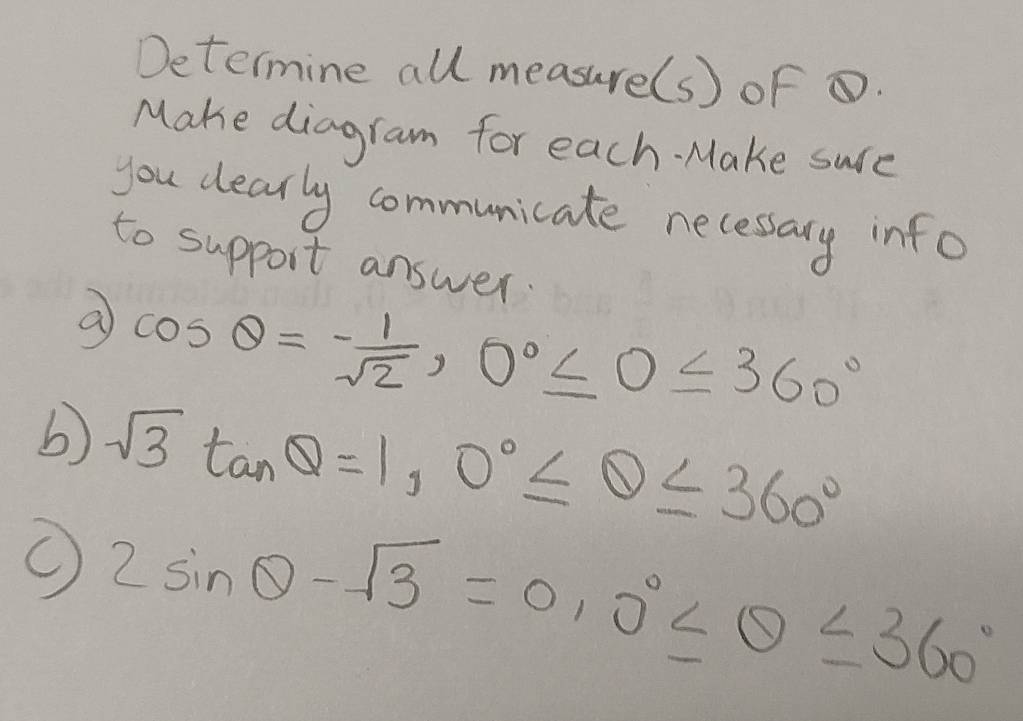 Determine all measure(s) of θ.
Make diagram for each. Make sure
you clearly communicate necessary info
to support answer.
a) cos θ = -1/√2, 0° ≤ 0 ≤ 360°
b) √3 tan θ = 1, 0° ≤ θ ≤ 360°
c) 2 sin θ - √3 = 0, 0° ≤ θ ≤ 360°